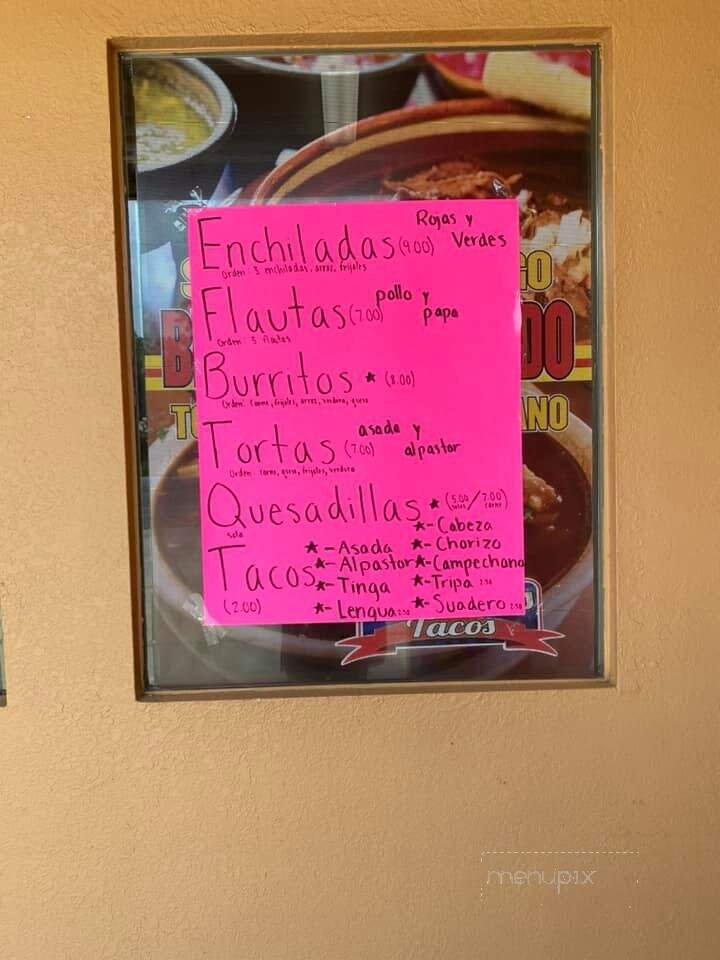 Rojas y
Enchiladas (9.00) Verdes
Orden: 3 enchiladas, arroz, frijoles
pollo y
Flautas (7.00) papa
Orden: 5 flautas
Burritos ★ (8.00)
Orden: carne, frijoles, arroz, verdura, queso
asada y
Tortas (7.00) alpastor
Orden: carne, queso, frijoles, verdura
Quesadillas ★ (5.00/7.00)
solas carne
sola
Tacos
(2.00)
★-Asada
★-Alpastor
★-Tinga
★-Lengua 2.50
★-Cabeza
★-Chorizo
★-Campechano
★-Tripa 2.50
★-Suadero 2.50
GO
B DO
TO ANO
Tacos
menupix